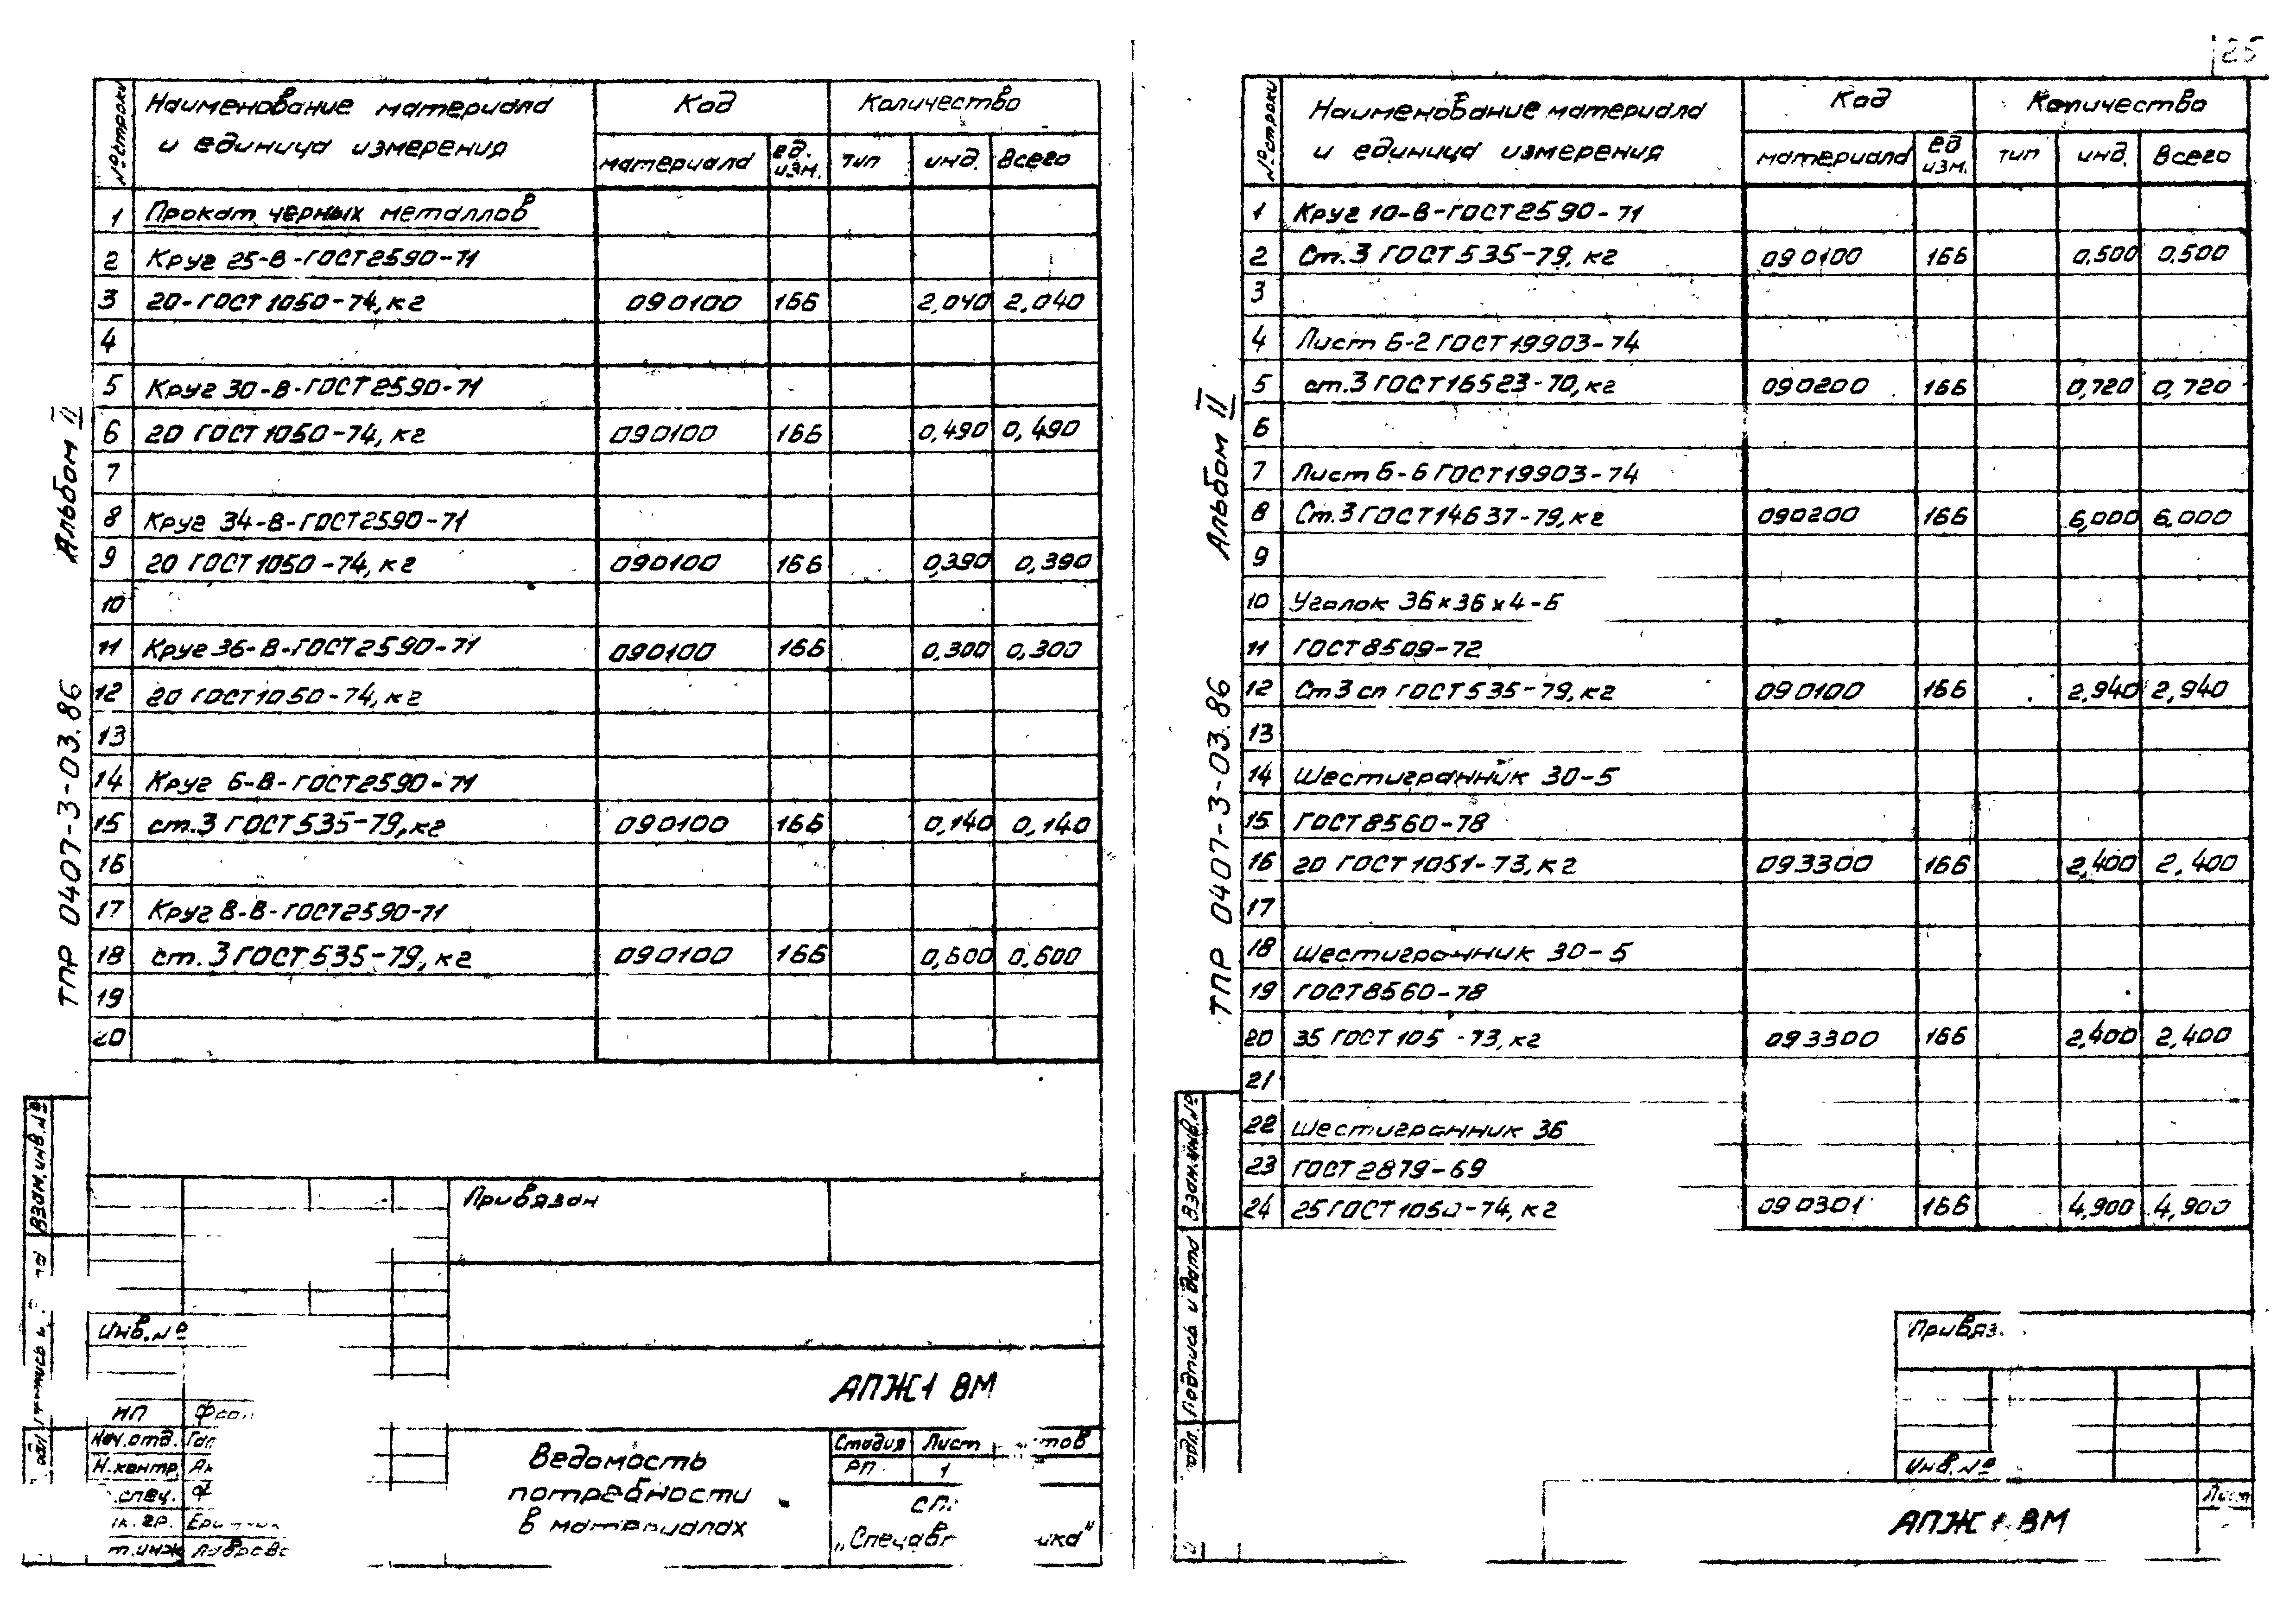 25
№ строки
Наименование материала
и единица измерения
Код
Количество
материала
ед. изм.
тип
инд.
Всего
1 Прокат черных металлов
2 Круг 25-В-ГОСТ2590-71
3 20-ГОСТ 1050-74, кг 090100 166 2,040 2,040
4
5 Круг 30-В-ГОСТ2590-71
6 20 ГОСТ 1050-74, кг 090100 166 0,490 0,490
7
8 Круг 34-В-ГОСТ2590-71
9 20 ГОСТ 1050-74, кг 090100 166 0,390 0,390
10
11 Круг 36-В-ГОСТ2590-71 090100 166 0,300 0,300
12 20 ГОСТ 1050-74, кг
13
14 Круг 6-В-ГОСТ2590-71
15 ст.3 ГОСТ 535-79, кг 090100 166 0,140 0,140
16
17 Круг 8-В-ГОСТ2590-71
18 ст. 3 ГОСТ 535-79, кг 090100 166 0,600 0,600
19
20
Альбом II
ТПР 0407-3-03.86
Взам. инв. №
Привязан
Инв. №
АПЖ1 ВМ
Нач. отд.
Н. контр
спец.
Ведомость
потребности
в материалах
Стадия Лист
РП 1
№ строки
Наименование материала
и единица измерения
Код
Количество
материала
ед изм.
тип
инд.
Всего
1 Круг 10-В-ГОСТ2590-71
2 Ст.3 ГОСТ 535-79, кг 090100 166 0,500 0,500
3
4 Лист Б-2 ГОСТ 19903-74
5 ст.3 ГОСТ 16523-70, кг 090200 166 0,720 0,720
6
7 Лист Б-6 ГОСТ 19903-74
8 Ст.3 ГОСТ 14637-79, кг 090200 166 6,000 6,000
9
10 Уголок 36х36х4-Б
11 ГОСТ 8509-72
12 Ст3 сп ГОСТ 535-79, кг 090100 166 2,940 2,940
13
14 Шестигранник 30-5
15 ГОСТ 8560-78
16 20 ГОСТ 1051-73, кг 093300 166 2,400 2,400
17
18 Шестигранник 30-5
19 ГОСТ 8560-78
20 35 ГОСТ 105 -73, кг 093300 166 2,400 2,400
21
22 Шестигранник 36
23 ГОСТ 2879-69
24 25 ГОСТ 1050-74, кг 090301 166 4,900 4,900
Альбом II
ТПР 0407-3-03.86
Взам. инв. №
Подпись и дата
Привяз.
Инв. №
АПЖ1 ВМ
Лист